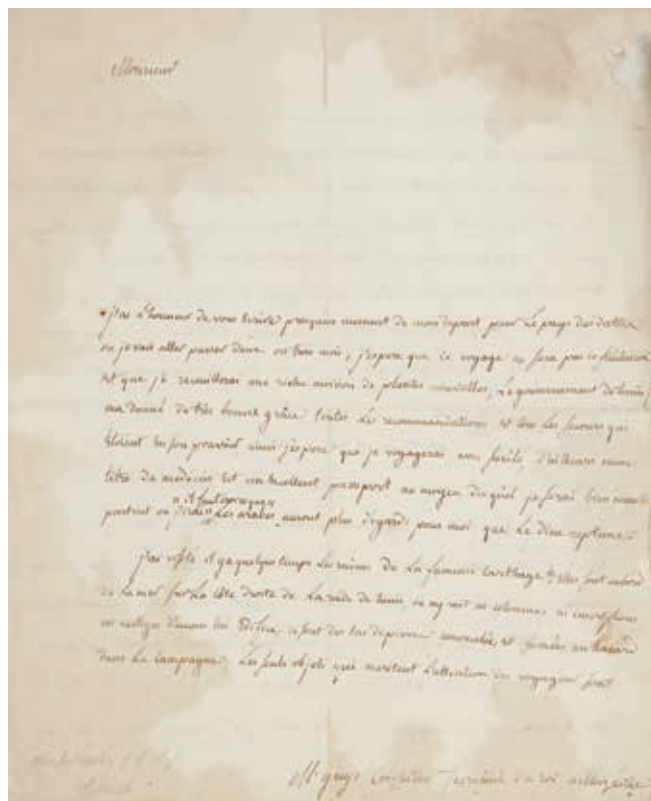 Monsieur
j'ai l'honneur de vous ecrire presqu'au moment de mon depart pour Le pays des dattes
ou je vais aller passer deux ou trois mois, j'espere que ce voyage ne sera pas infructueux
et que je recueillerai une riche moisson de plantes nouvelles. Le gouvernement de tunis
m'a donné de très bonne grâce toutes Les recommandations et tous Les secours qui
etoient en son pouvoir ainsi j'espere que je voyagerai avec sureté, d'ailleurs mon
titre de medecin est un excellent passeport au moyen duquel je serai bien reçu
partout ou Les arabes auront plus d'egards pour moi que Le dieu neptune.
j'ai visité il y a quelque temps Les ruines de La fameuse Carthage, elles sont au bord
de La mer sur La côte droite de La rade de tunis, on n'y voit ni colonnes ni inscriptions
ni vestiges d'aucun bel Edifice, ce sont des tas de pierres amoncelés et semés au hasard
dans La campagne, Les seuls objets qui meritent L'attention du voyageur sont
Mr guys Secretaire du roi a Marseille